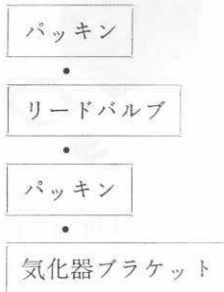 パッキン
リードバルブ
パッキン
気化器ブラケット